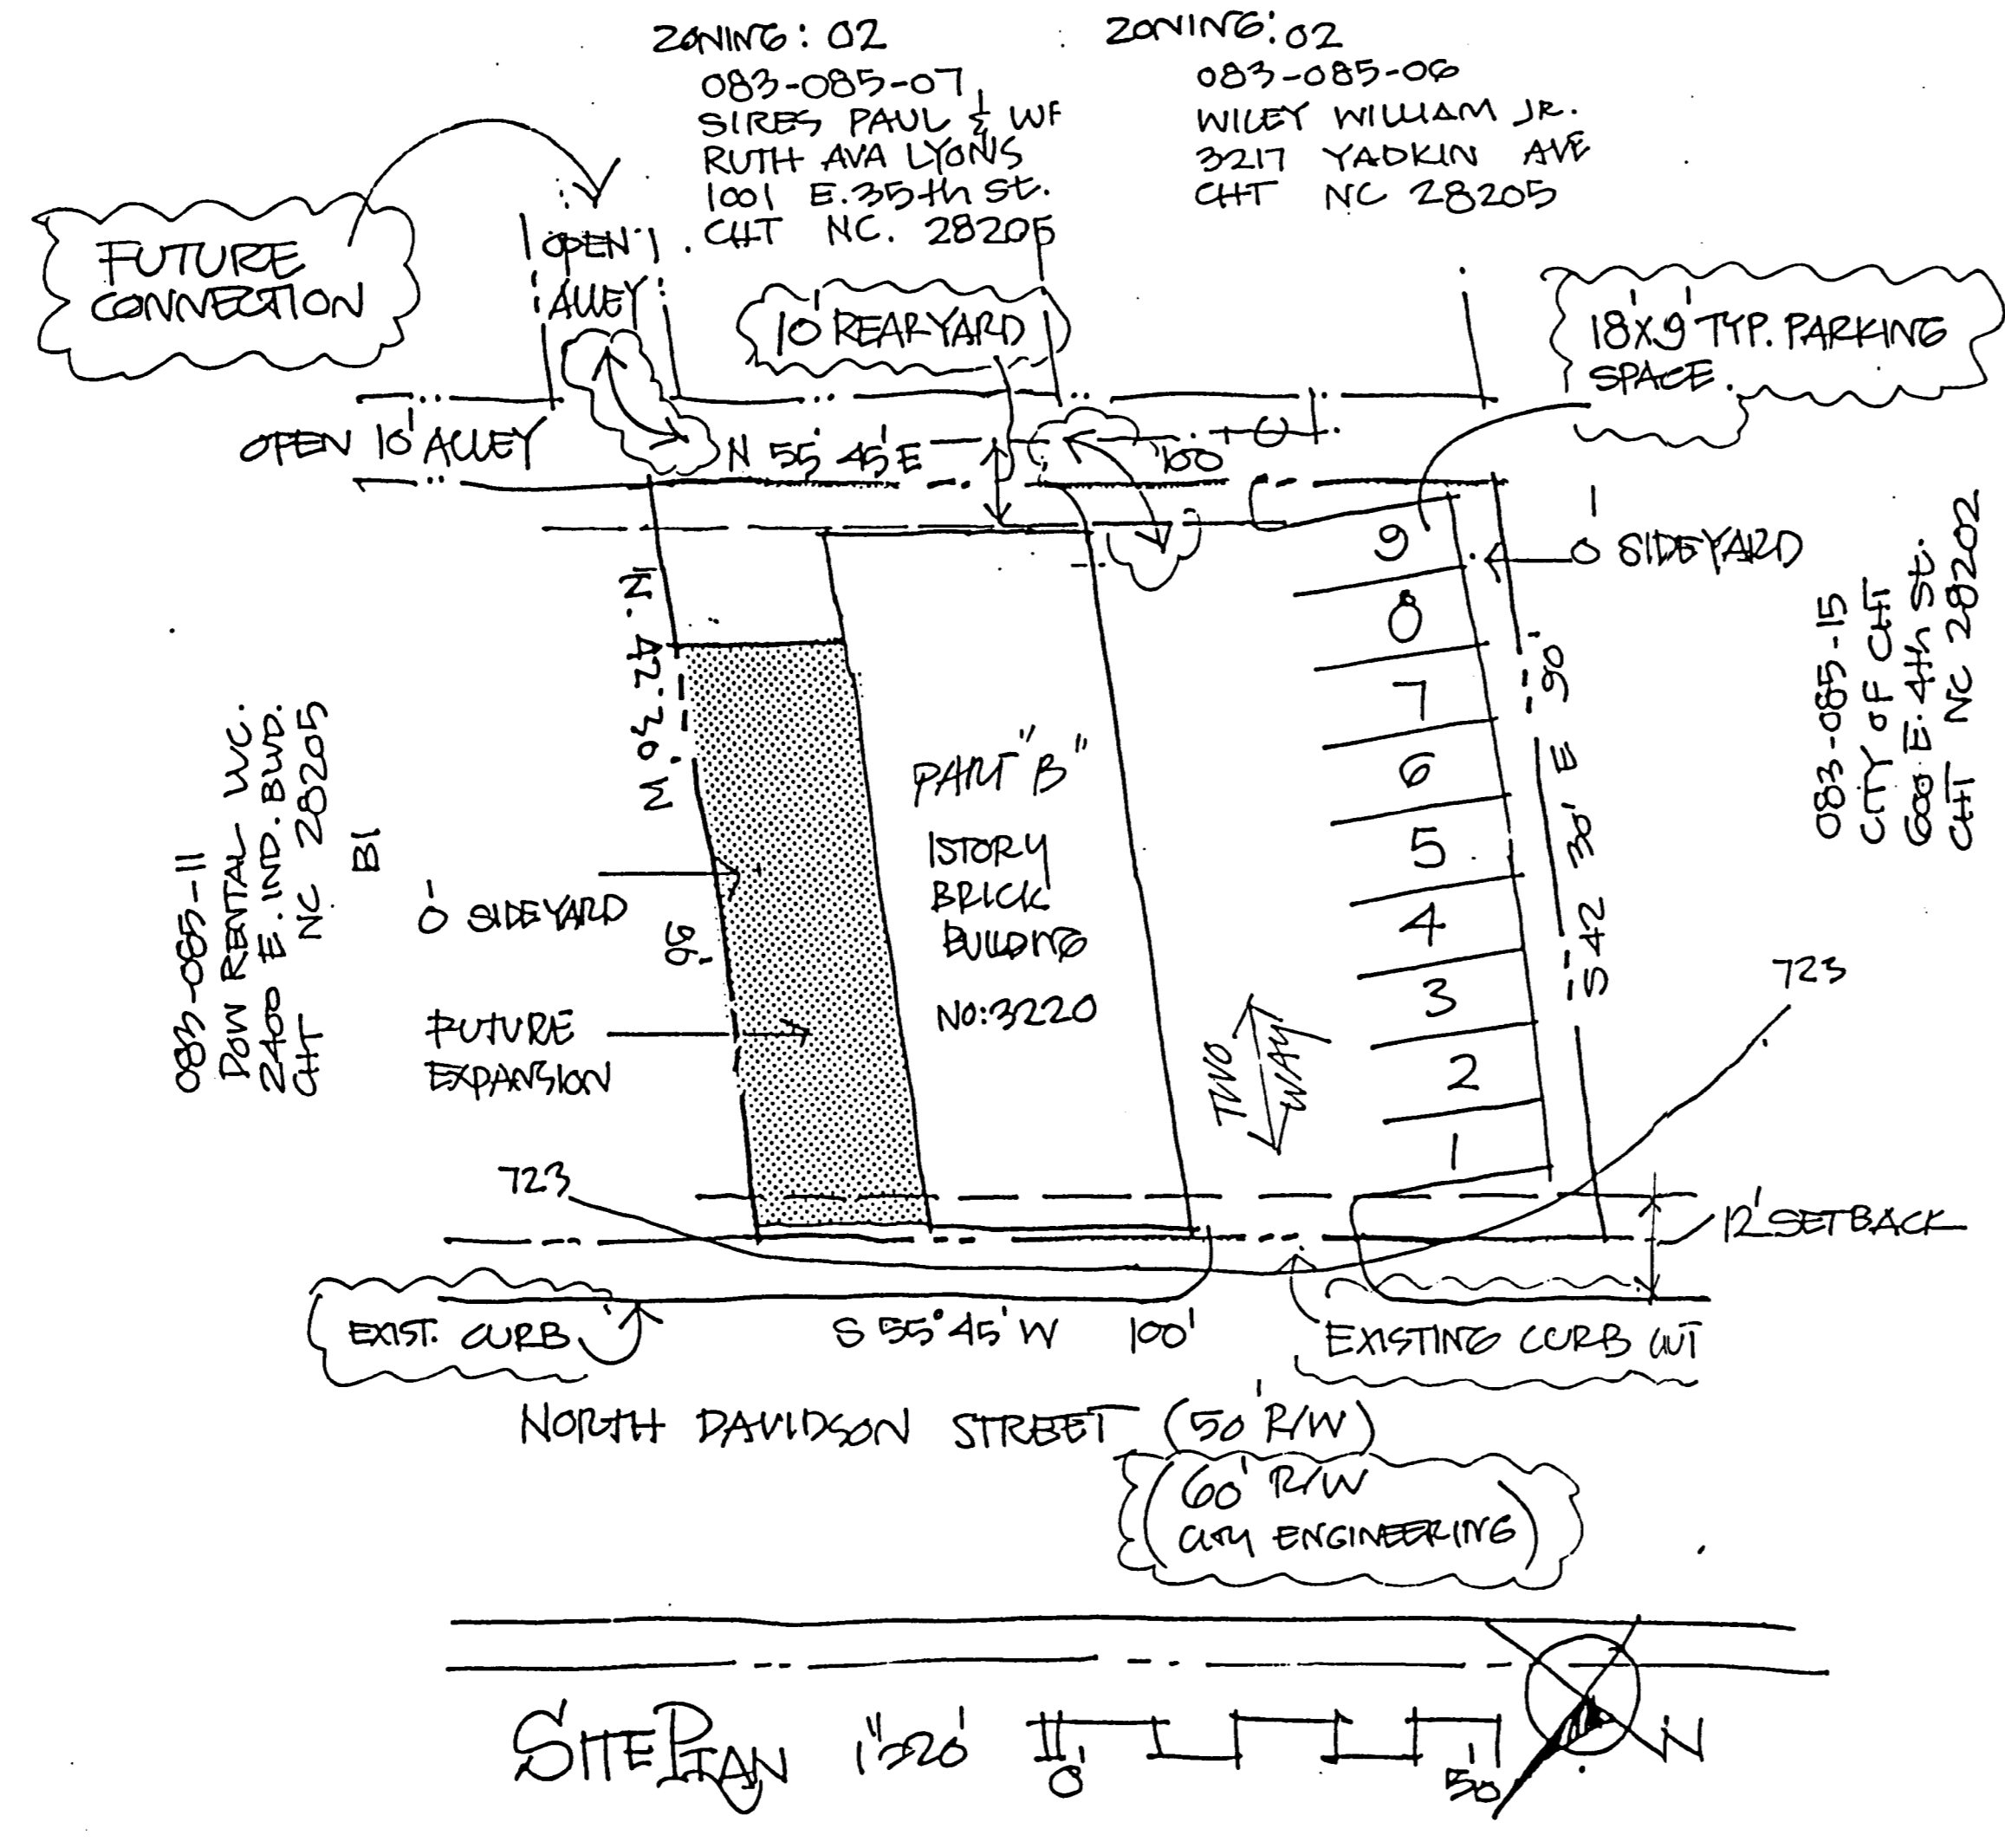 ZONING: 02
083-085-07
SIRES PAUL & WF
RUTH AVA LYONS
1001 E. 35th St.
CHT NC. 28205
ZONING: 02
083-085-06
WILEY WILLIAM JR.
3217 YADKIN AVE
CHT NC 28205
FUTURE
CONNECTION
OPEN
ALLEY
10' REAR YARD
18'x9' TYP. PARKING
SPACE.
OPEN 10' ALLEY
N 55° 45' E
100'
0' SIDEYARD
N. 42° 30' W
96'
083-085-11
DOW RENTAL INC.
2400 E. IND. BLVD.
CHT NC 28205
B1
0' SIDEYARD
FUTURE
EXPANSION
PART "B"
1 STORY
BRICK
BUILDING
NO: 3220
TWO
WAY
9
8
7
6
5
4
3
2
1
90'
S 42° 30' E
083-085-15
CITY OF CHT
600 E. 4th St.
CHT NC 28202
723
723
12' SETBACK
EXIST. CURB
S 55° 45' W 100'
EXISTING CURB CUT
NORTH DAVIDSON STREET (50' R/W)
(60' R/W
CITY ENGINEERING)
SITE PLAN 1"=20'
0'
50'
N